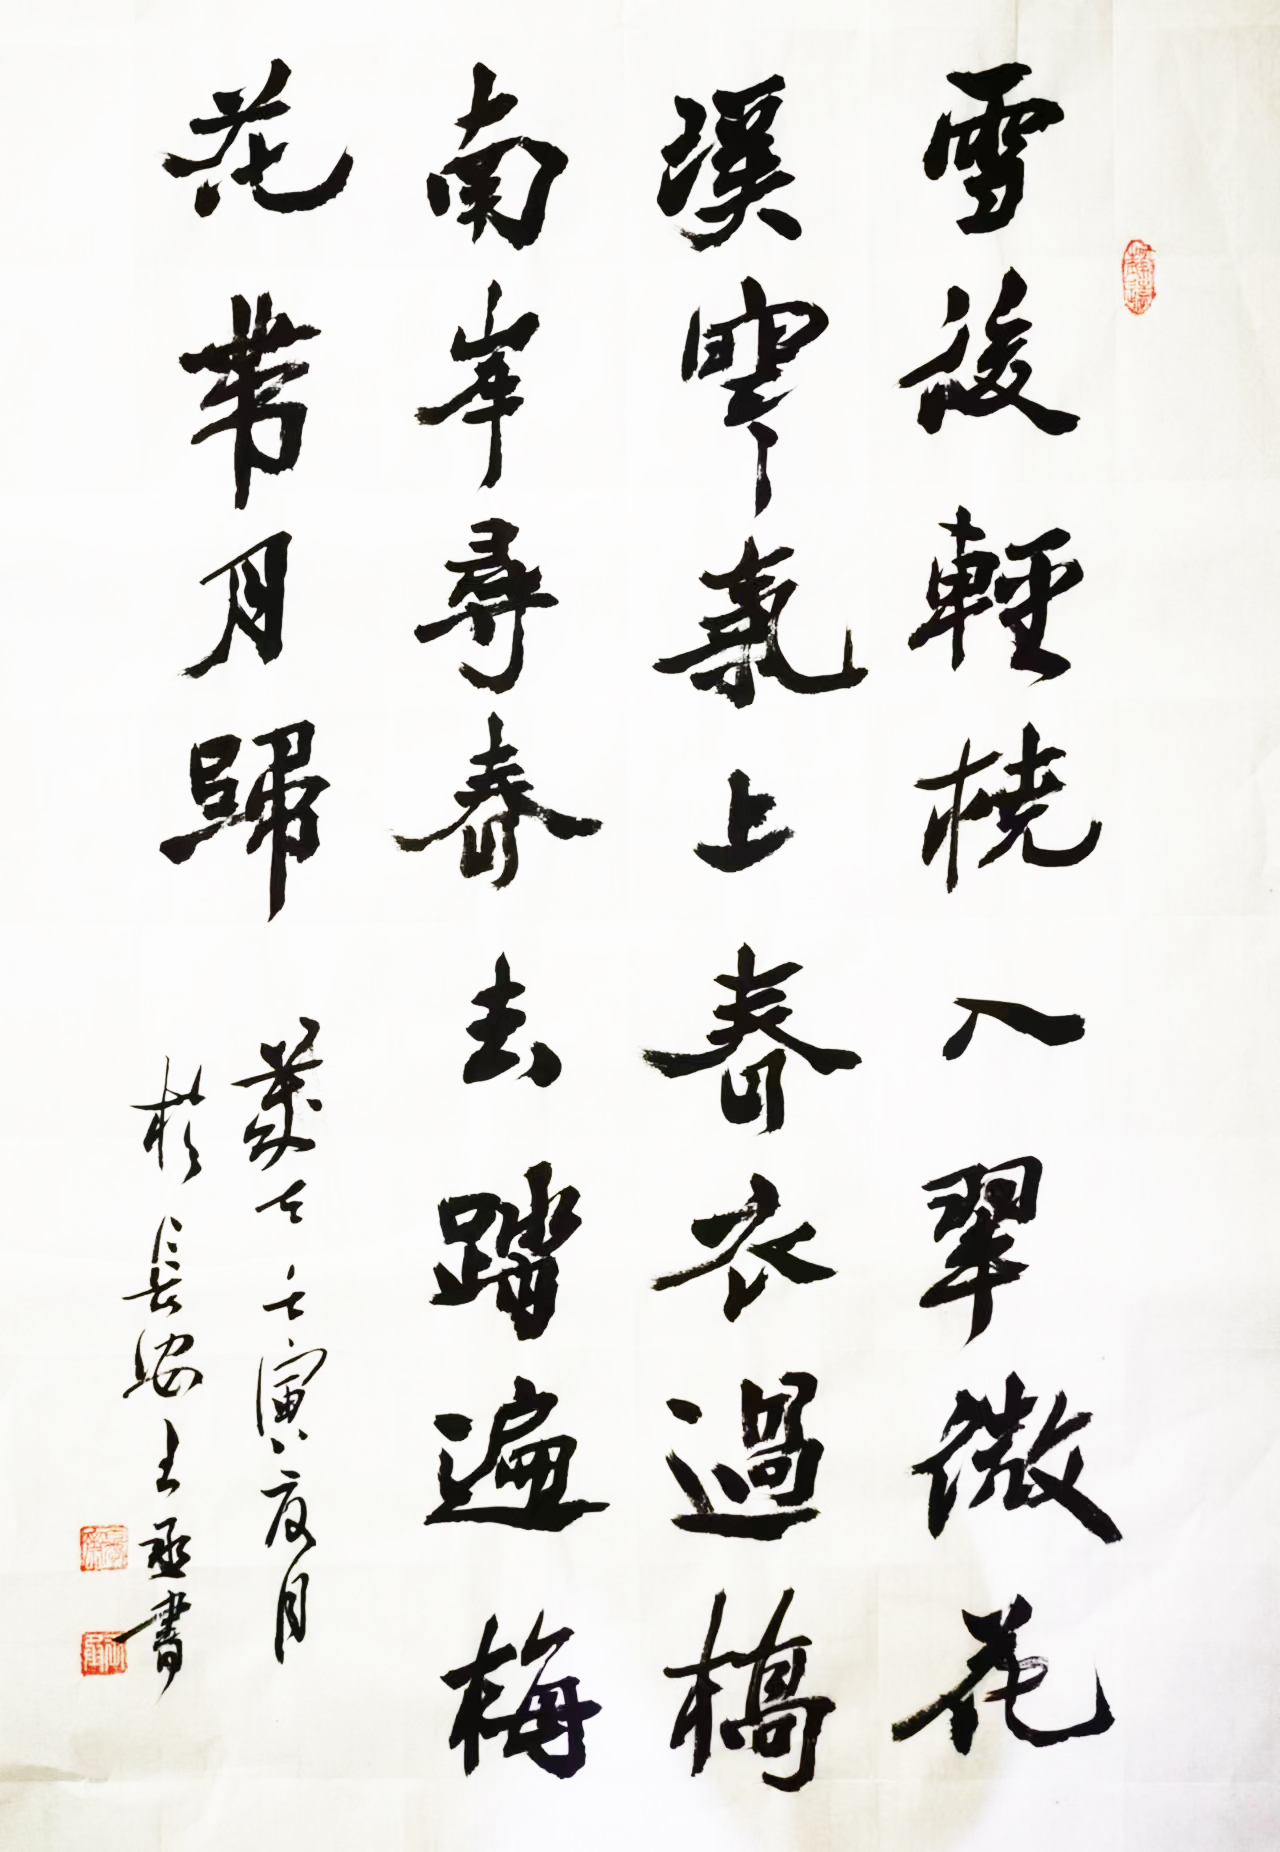 雪後輕桡入翠微花
溪寒氣上春衣過橋
南岸尋春去踏遍梅
花帶月歸
歲在壬寅夏月
於長安王丞書